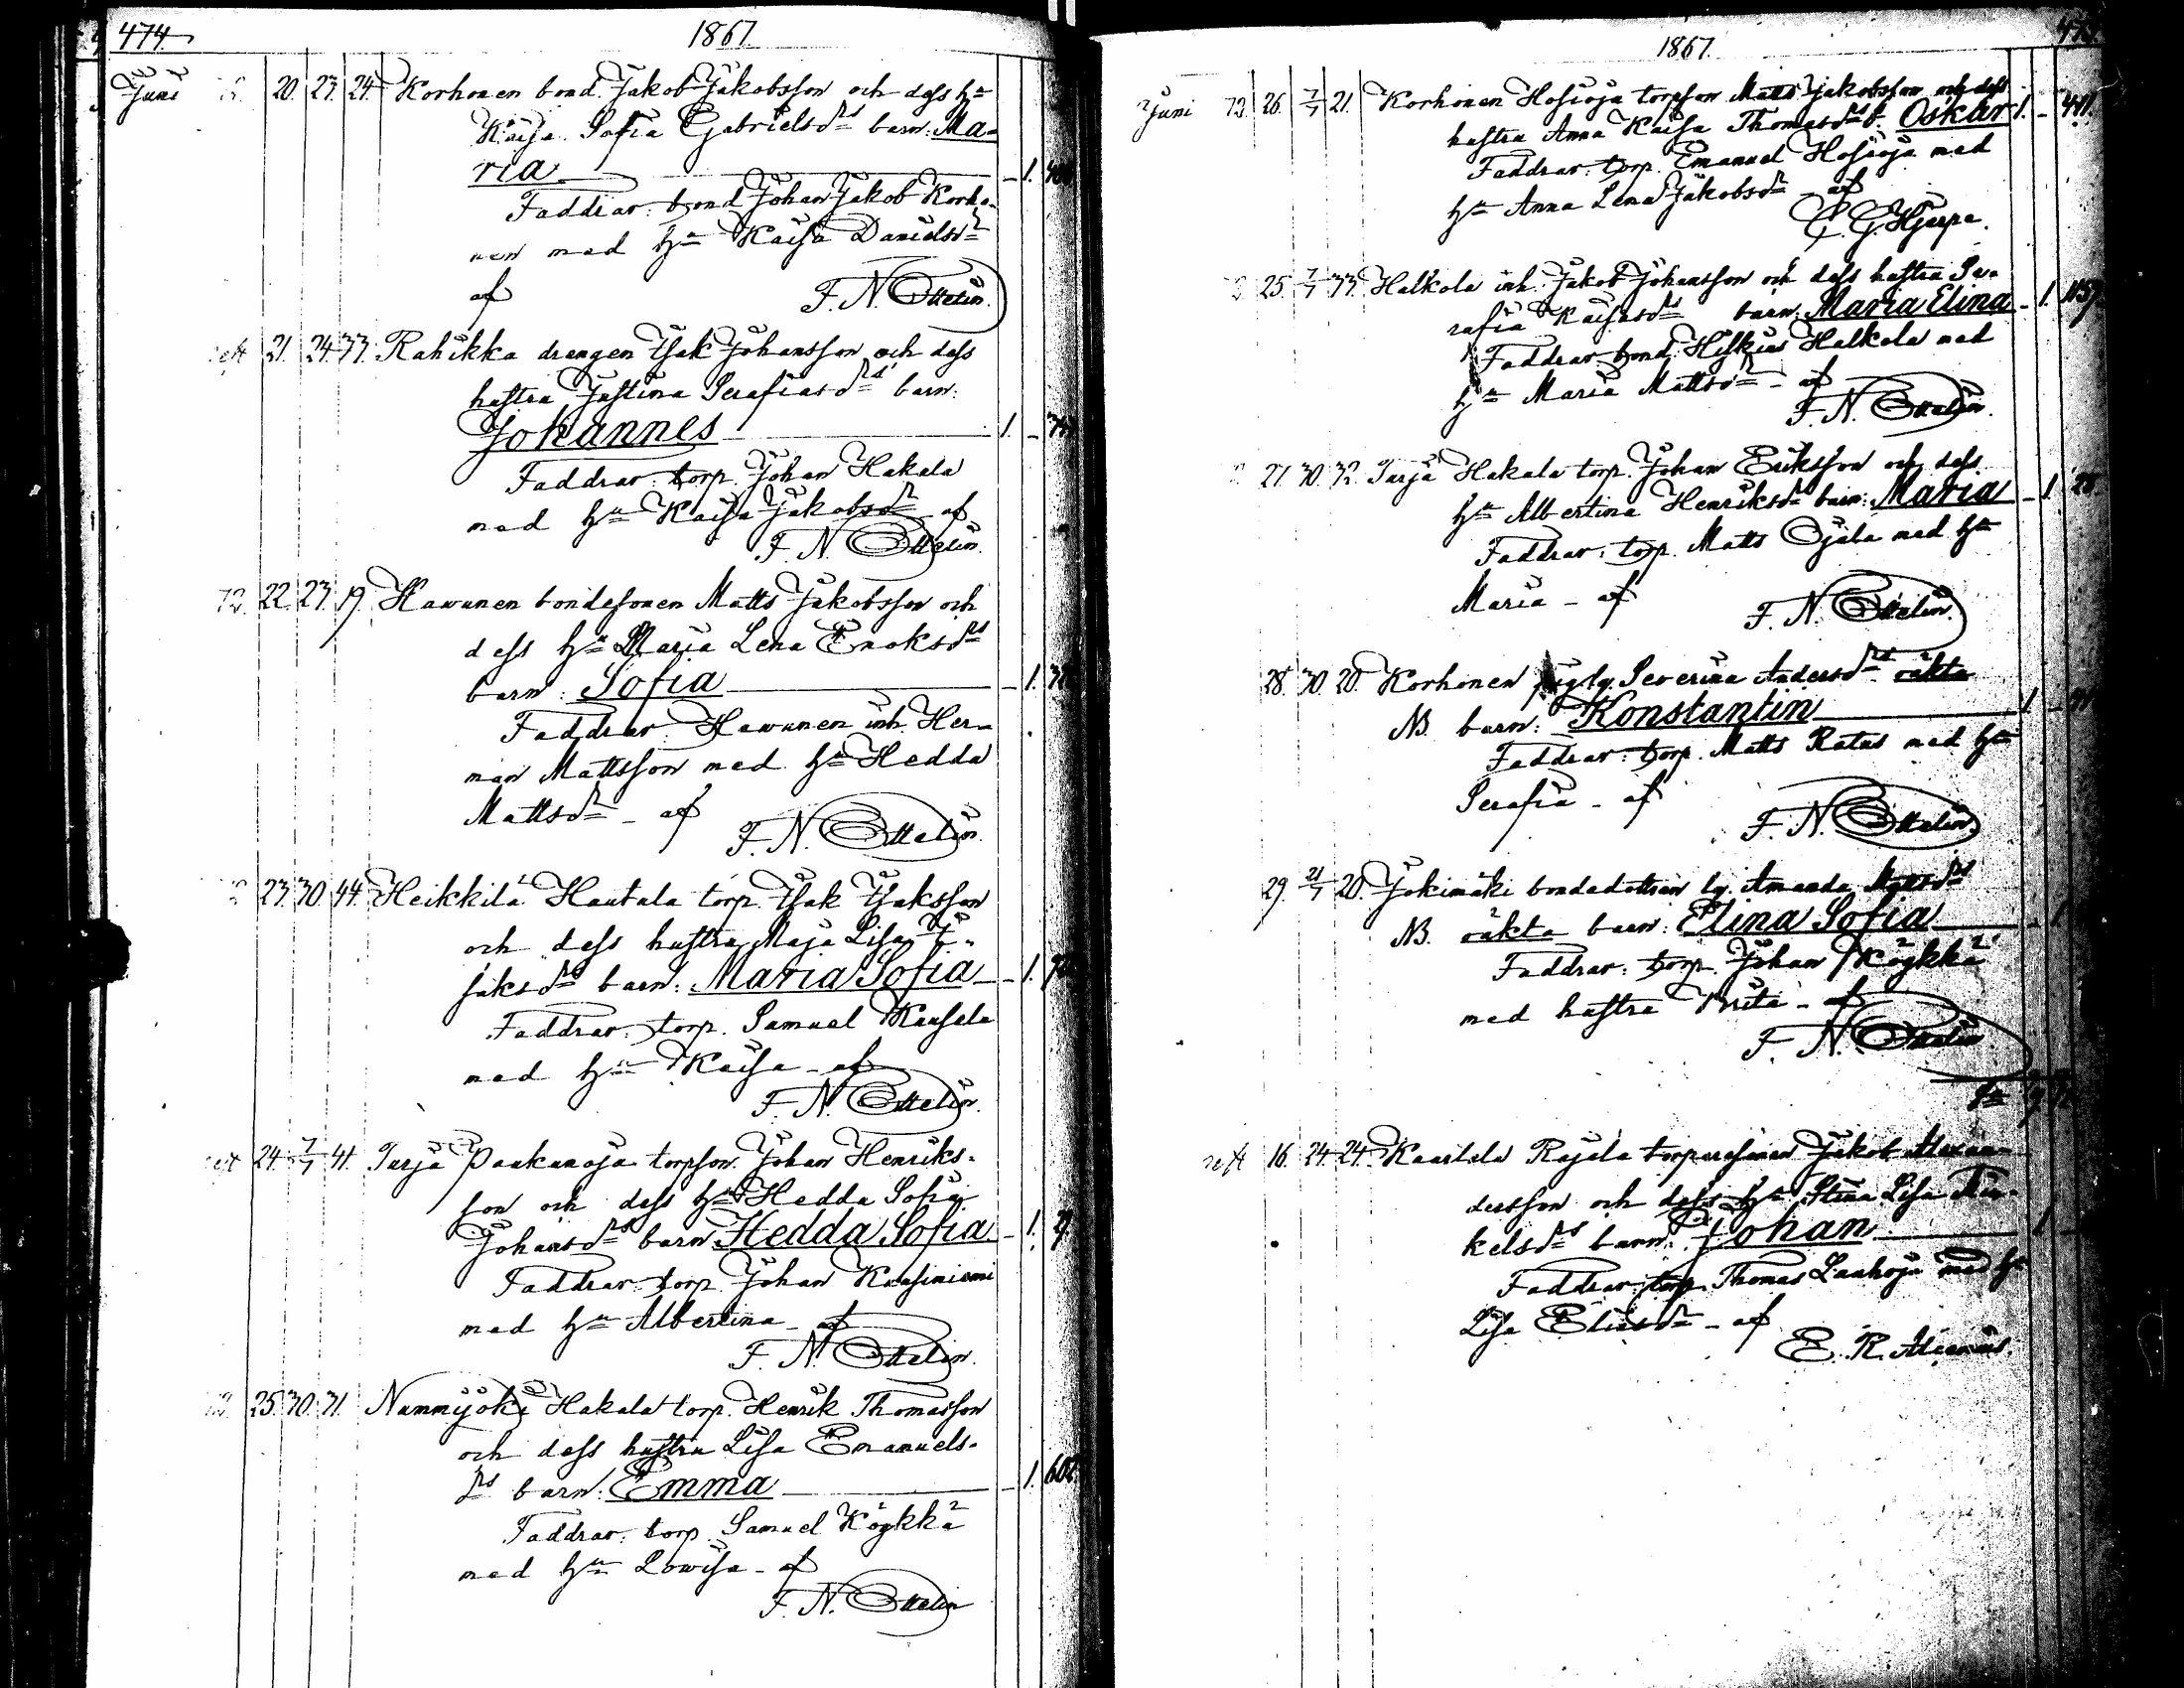 474
1867.
Juni 20. 23. 24. Korhonen bond. Jakob Jakobsson och dess hu
Kaisa Sofia Gabrielsdrs barn: Ma-
ria 1.
Faddrar: bond Johan Jakob Korho-
nen med hu Kaisa Danielsdr
af F. N. Ottelin.
21. 24. 33. Rahikka drengen Isak Johansson och dess
hustru Justina Serafiasdrs barn:
Johannes 1.
Faddrar: torp. Johan Hakala
med hu Kaisa Jakobsdr af
F. N. Ottelin.
72. 22. 23. 19. Hawunen bondesonen Matts Jakobsson och
dess hu Maria Lena Enoksdrs
barn: Sofia 1.
Faddrar: Hawunen inh. Her-
man Mattsson med hu Hedda
Mattsdr - af
F. N. Ottelin.
23. 30. 44. Heikkilä Hautala torp. Isak Isaksson
och dess hustru Maja Lisa I-
saksdrs barn: Maria Sofia 1.
Faddrar: torp. Samuel
med hu Kaisa - af
F. N. Ottelin.
24. 7/7 41. Turja Paukunoja torpson Johan Henriks-
son och dess hu Hedda Sofia
Johansdrs barn Hedda Sofia 1.
Faddrar: torp. Johan Kaasiniemi
med hu Albertina - af
F. N. Ottelin.
25. 30. 31. Nummijoki Hakala torp. Henrik Thomasson
och dess hustru Lisa Emanuels-
drs barn: Emma 1. 602.
Faddrar: torp. Samuel Köykkä
med hu Lowisa - af
F. N. Ottelin
1867.
Juni 72. 26. 7/7 21. Korhonen Hosioja torpson Matts Jakobsson och dess
hustru Anna Kaisa Thomasdrs b. Oskar 1.
Faddrar: torp. Emanuel Hosioja med
hu Anna Lena Jakobsdr - af
G. Hjerpe.
25. 7/7 33. Halkola inh. Jakob Johansson och dess hustru Se-
rafia Kaisasdrs barn: Maria Elina 1.
Faddrar: bond. Hiskias Halkola med
hu Maria Mattsdr - af
F. N. Ottelin.
27. 30. 32. Turja Hakala torp. Johan Eriksson och dess
hu Albertina Henriksdrs barn: Maria 1.
Faddrar: torp. Matts Ojala med hu
Maria - af
F. N. Ottelin.
28. 30. 20. Korhonen pig. lg. Severina Andersdrs oäkta
NB. barn: Konstantin 1.
Faddrar: torp. Matts Ratas med hu
Serafia - af
F. N. Ottelin.
29. 21/7 20. Jokimäki bondedottren lg. Amanda Mattsdrs
NB. oäkta barn: Elina Sofia 1
Faddrar: torp. Johan Köykkä
med hustru Brita - af
F. N. Ottelin
16. 24. 24. Kaartela Rajala torparesonen Jakob Alexan-
dersson och dess hu Stina Lisa Mi-
kelsdrs barn: Johan 1
Faddrar: torp. Thomas Lauhoja med hu
Lisa Eliasdr - af
E. R. Alcenius.